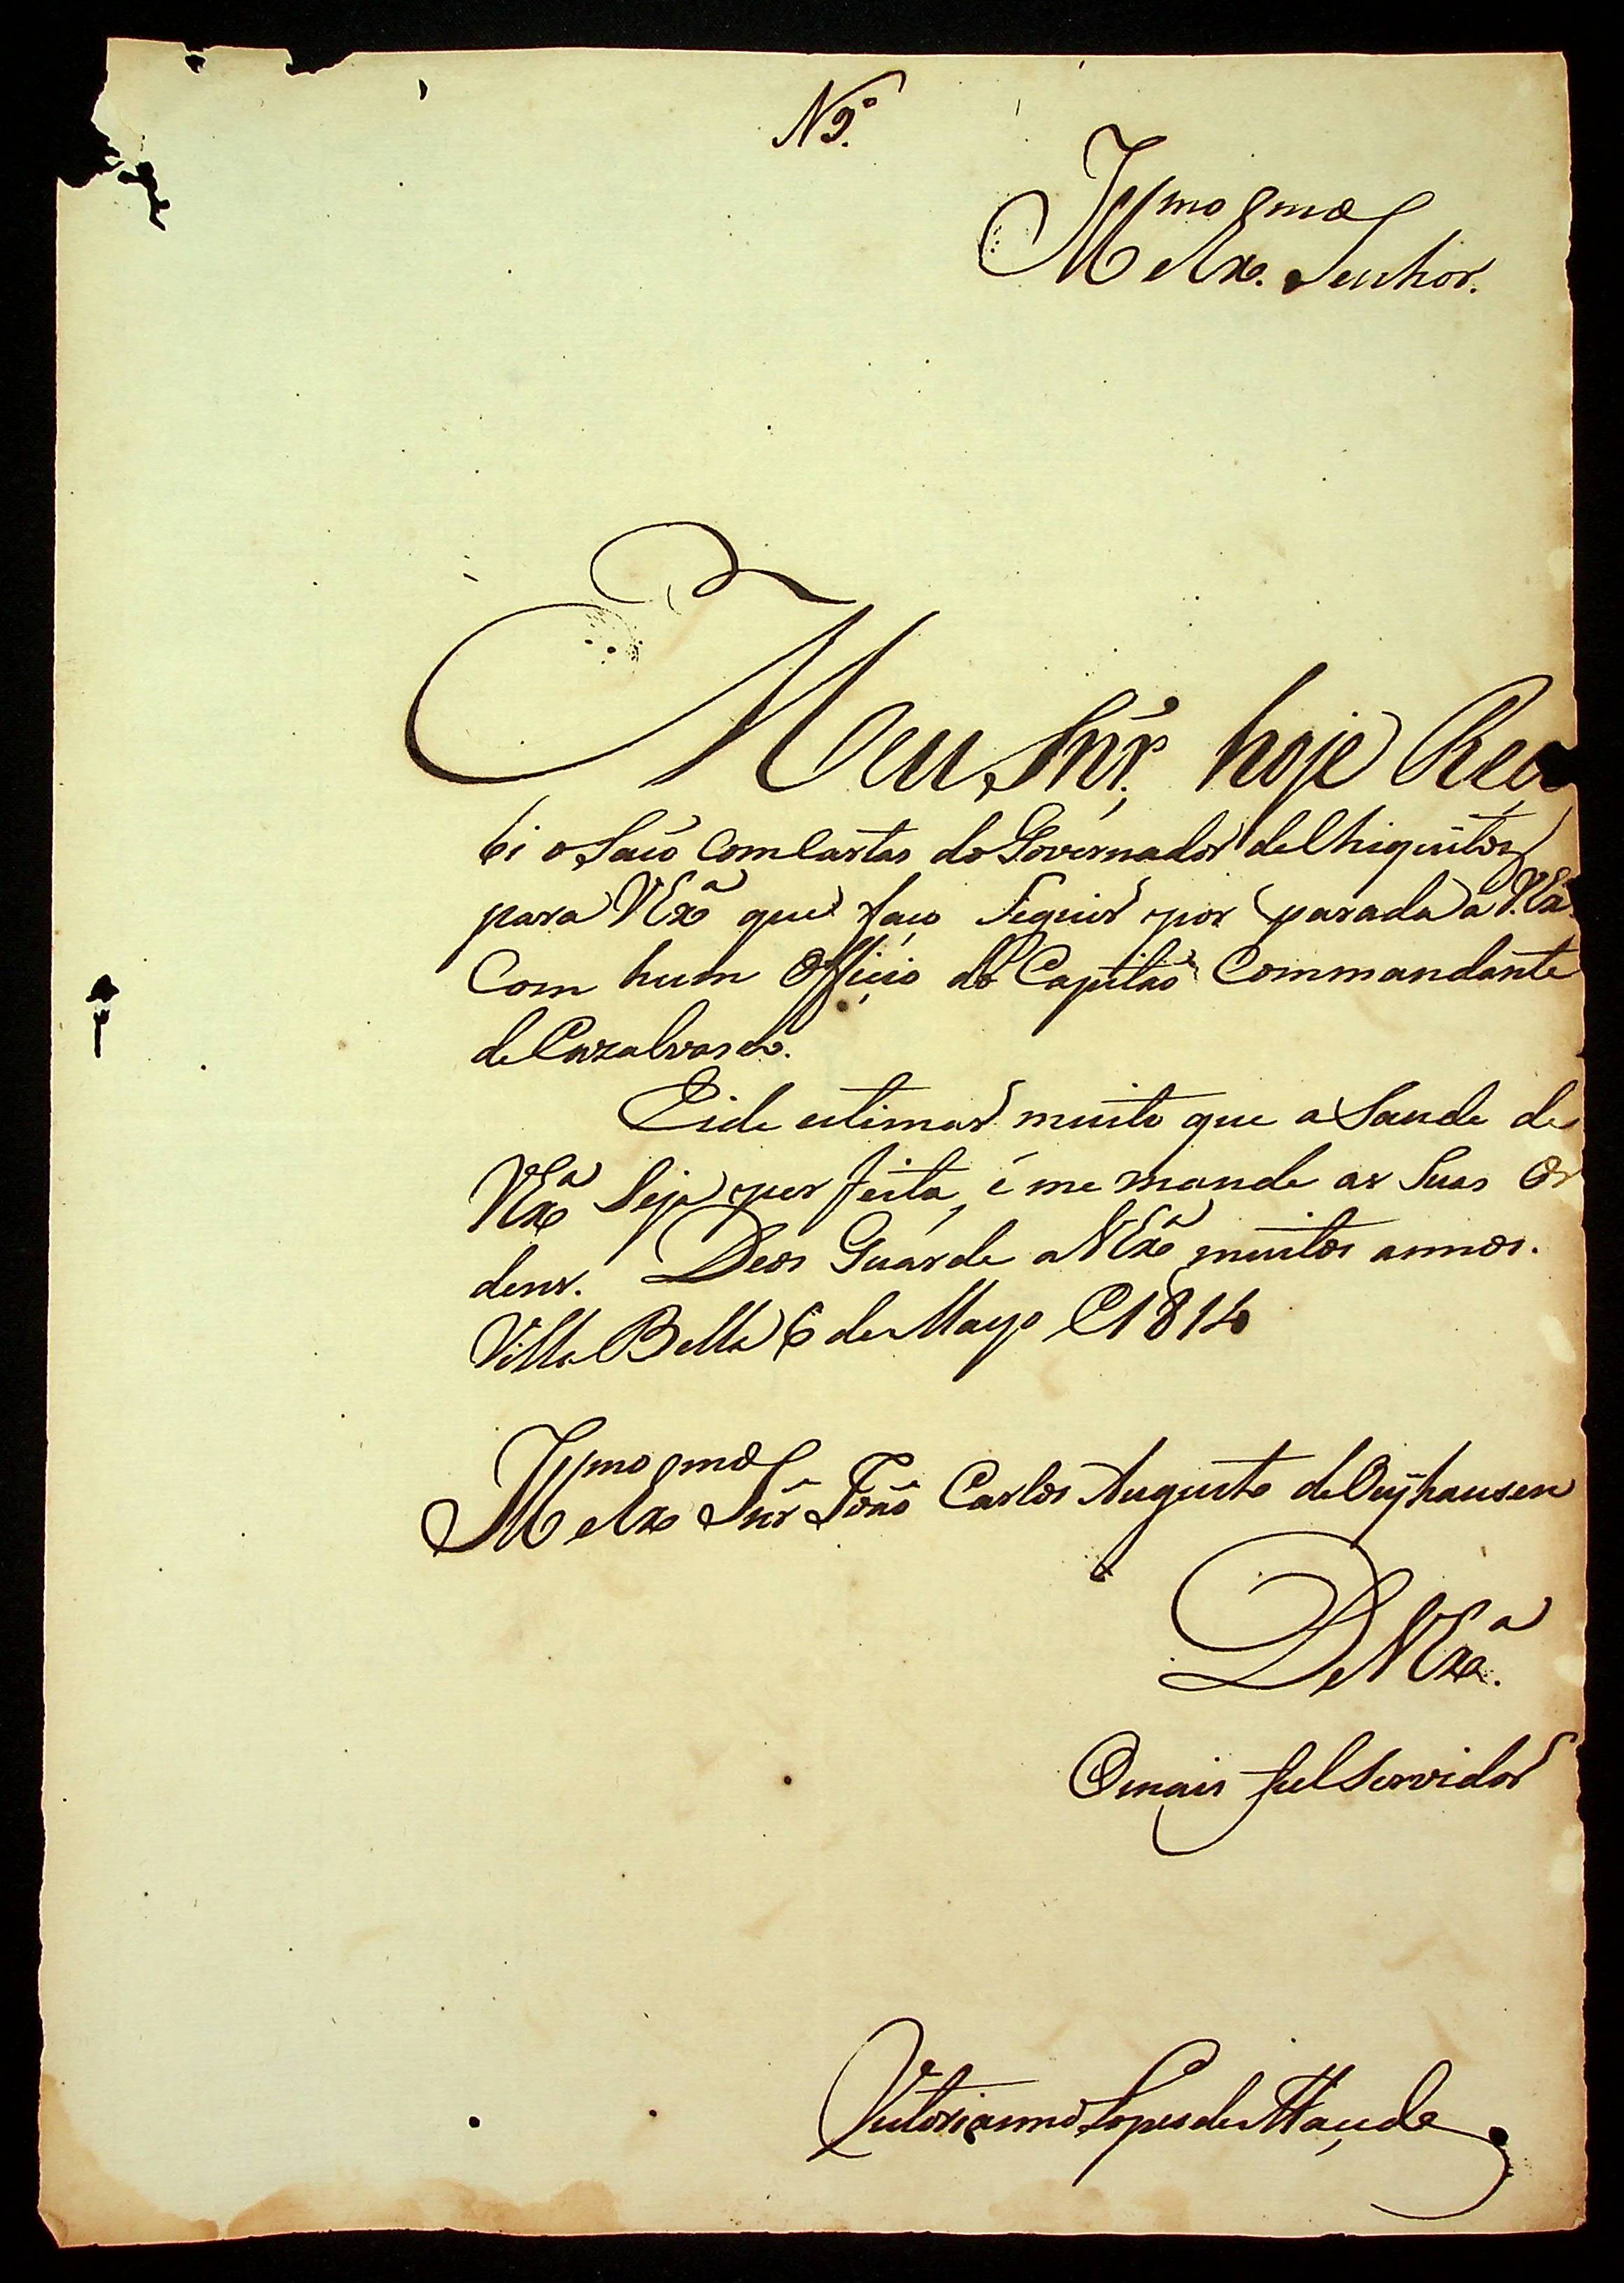 N 9.º
Ill.mo e Ex.mo Senhor.
Meu Snr.; hoje Rece
bi o Saco com Cartas do Governador de Chiquitos
para V Ex.ª que faço Seguir por parada a V. Ex.ª
Com hum Officio do Capitaõ Commandante
de Cazalvasco.
Eide estimar muito que a Saude de
V Ex.ª Seja perfeita, é me mande as Suas Or
dens. Deos Guarde a V Ex.ª muitos annos.
Villa Bella 6 de Mayo 1814
Ill.mo e Ex.mo Snr Joaõ Carlos Augusto de Oeÿhausen
De V Ex.ª
O mais fiel Servidor
Victorianno Lopes de